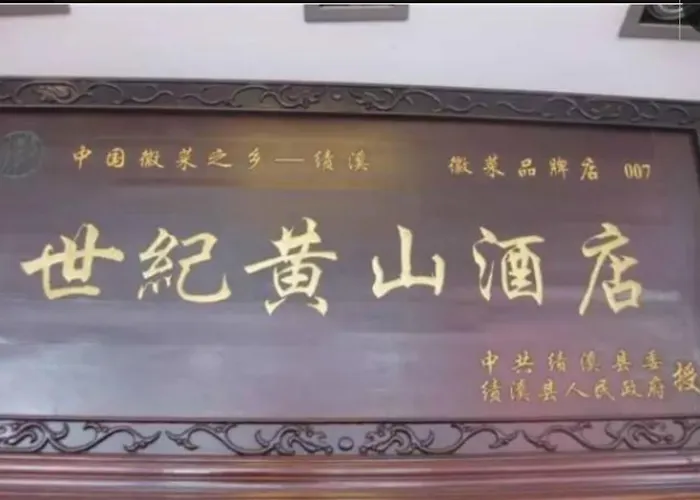 中国徽菜之乡—绩溪 徽菜品牌店 007
世紀黄山酒店
中共绩溪县委
绩溪县人民政府 授